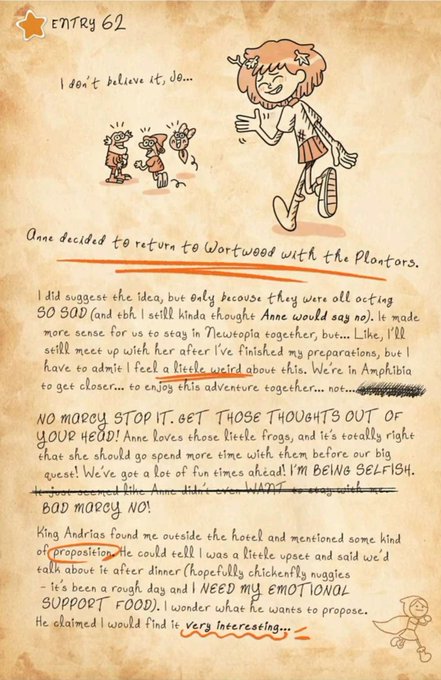 ENTRY 62
I don't believe it, Jo...
Anne decided to return to Wartwood with the Plantars.
I did suggest the idea, but only because they were all acting
SO SAD (and tbh I still kinda thought Anne would say no). It made
more sense for us to stay in Newtopia together, but... Like, I'll
still meet up with her after I've finished my preparations, but I
have to admit I feel a little weird about this. We're in Amphibia
to get closer... to enjoy this adventure together... not...
NO MARCY STOP IT. GET THOSE THOUGHTS OUT OF
YOUR HEAD! Anne loves those little frogs, and it's totally right
that she should go spend more time with them before our big
quest! We've got a lot of fun times ahead! I'M BEING SELFISH.
It just seemed like Anne didn't even WANT to stay with me.
BAD MARCY NO!
King Andrias found me outside the hotel and mentioned some kind
of proposition. He could tell I was a little upset and said we'd
talk about it after dinner (hopefully chickenfly nuggies
- it's been a rough day and I NEED MY EMOTIONAL
SUPPORT FOOD). I wonder what he wants to propose.
He claimed I would find it very interesting...